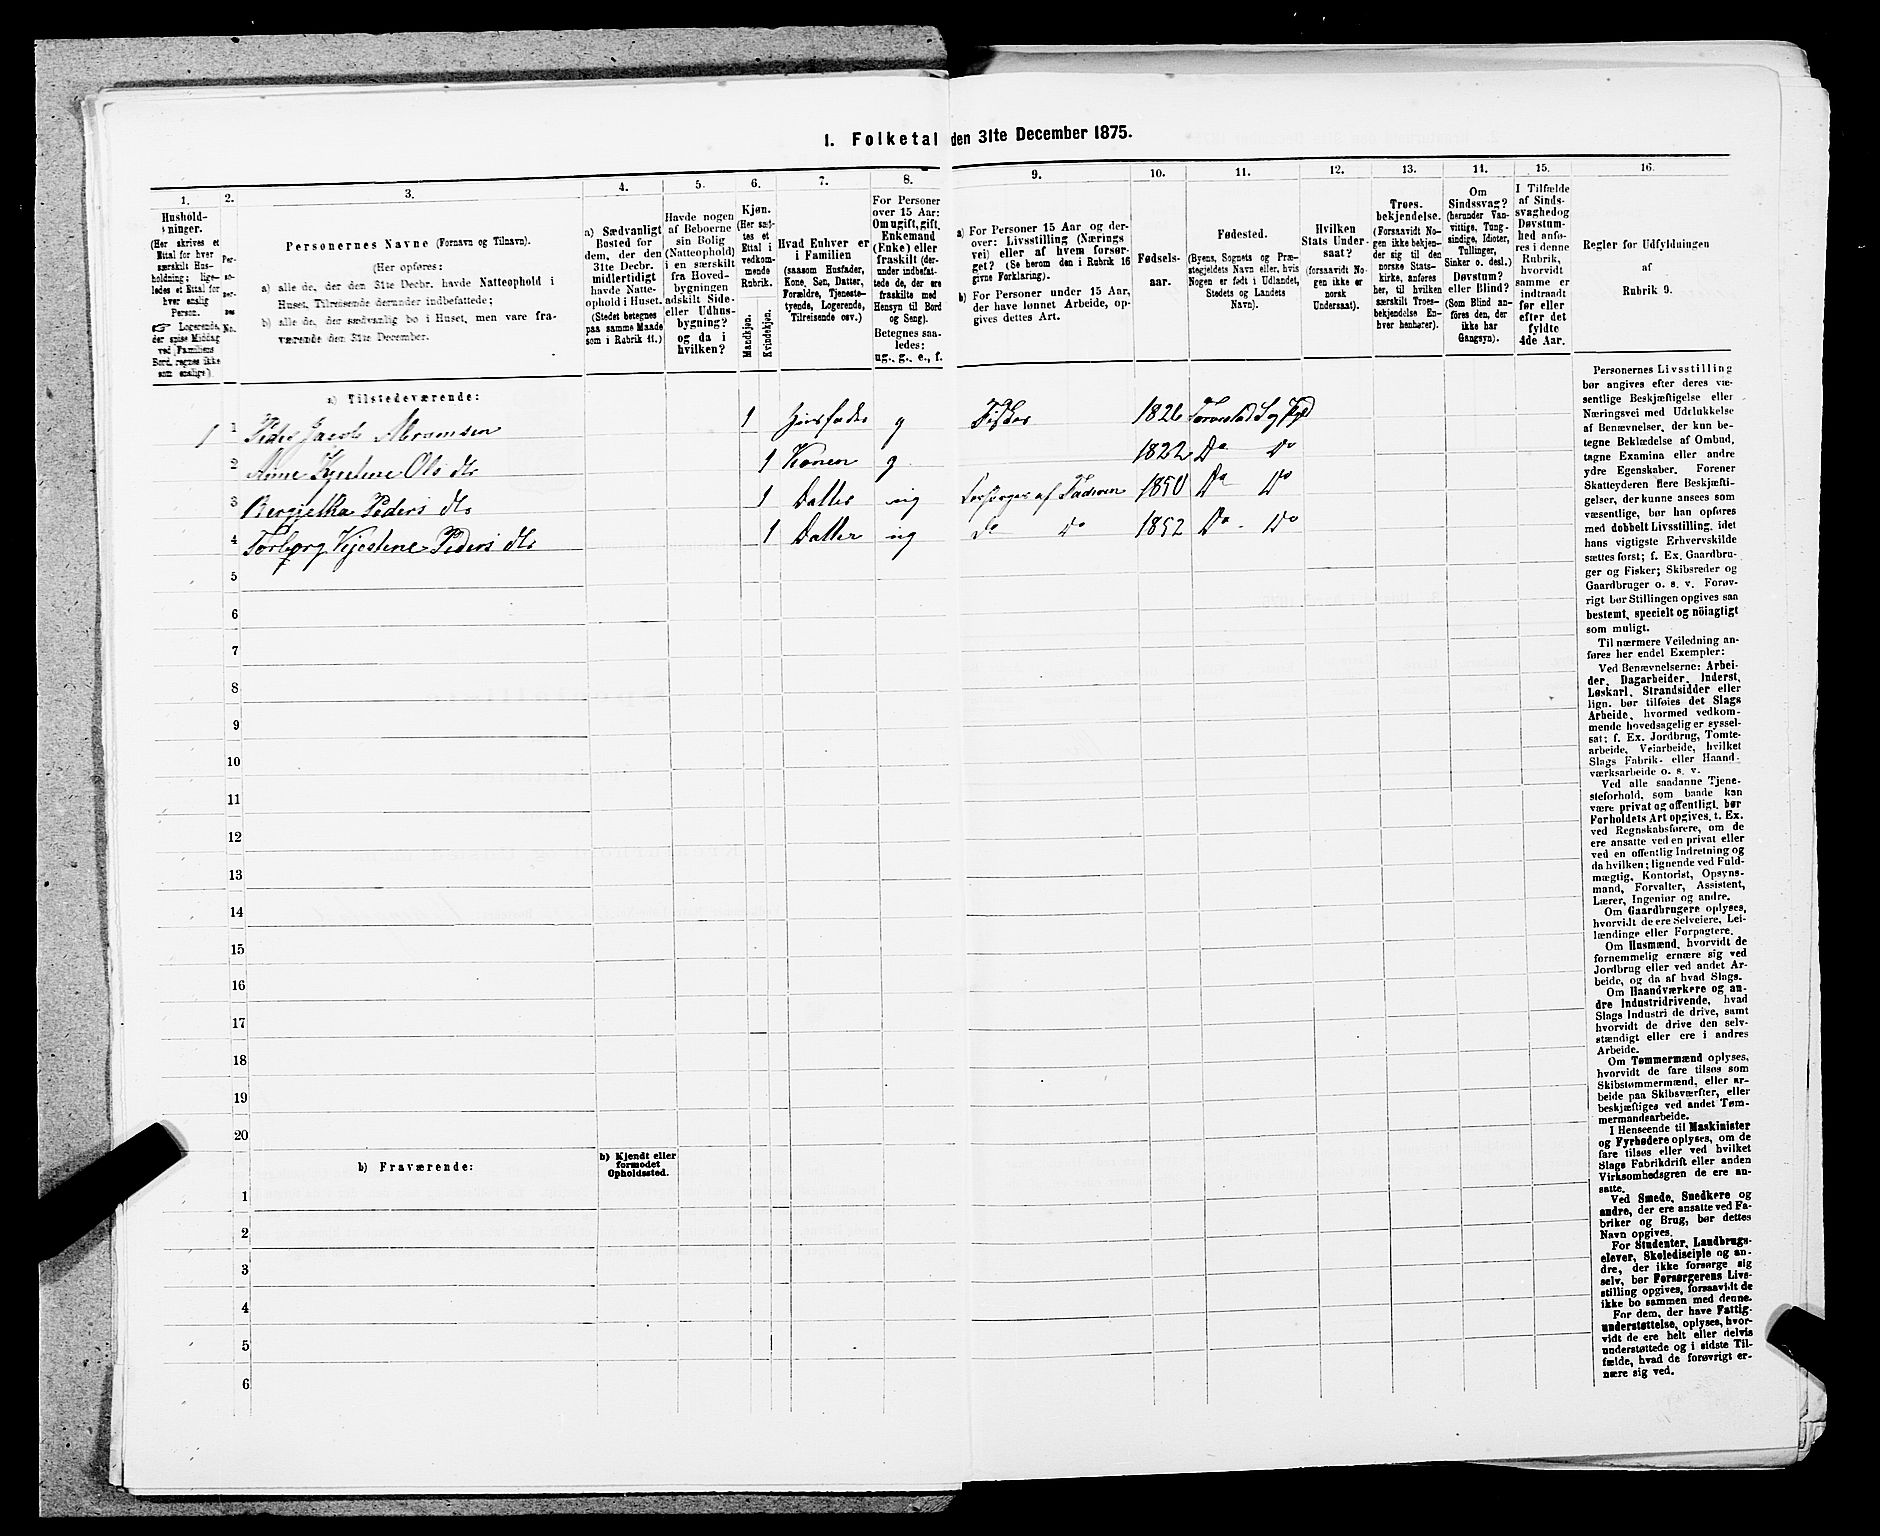 1. Folketal den 31te December 1875.
1.
Hushold-
ninger.
(Her skrives et
Ettal for hver
særskilt Hus-
holdning; lige-
ledes et Ettal for
hver enslig
Person.
☞ Logerende,
der spise Middag
ved Familiens
Bord, regnes ikke
som enslige).
2.
Per-
so-
ner-
nes
No.
3.
Personernes Navne (Fornavn og Tilnavn).
(Her opføres:
a) alle de, der den 31te Decbr. havde Natteophold i
Huset, Tilreisende derunder indbefattede;
b) alle de, der sædvanlig bo i Huset, men vare fra-
værende den 31te December.
4.
a) Sædvanligt
Bosted for
dem, der den
31te Decbr.
midlertidigt
havde Natte-
ophold i Huset.
(Stedet betegnes
paa samme Maade
som i Rubrik 11.)
5.
Havde nogen
af Beboerne
sin Bolig
(Natteophold)
i en særskilt
fra Hoved-
bygningen
adskilt Side-
eller Udhus-
bygning?
og da i
hvilken?
6.
Kjøn.
(Her sæt-
tes et
Ettal i
vedkom-
mende
Rubrik.
Mandkjøn.
Kvindekjøn.
7.
Hvad Enhver er
i Familien
(saasom Husfader,
Kone, Søn, Datter,
Forældre, Tjeneste-
tyende, Logerende,
Tilreisende osv.)
8.
For Personer
over 15 Aar:
Om ugift, gift,
Enkemand
(Enke) eller
fraskilt (der-
under indbefat-
tede de, der ere
fraskilte med
Hensyn til Bord
og Seng).
Betegnes saa-
ledes:
ug., g., e., f.
9.
a) For Personer 15 Aar og der-
over: Livsstilling (Nærings
vei) eller af hvem forsør-
get? (Se herom den i Rubrik 16
givne Forklaring).
b) For Personer under 15 Aar,
der have lønnet Arbeide, op-
gives dettes Art.
10.
Fødsels-
aar.
11.
Fødested.
(Byens, Sognets og Præ-
stegjeldets Navn eller, hvis
Nogen er født i Udlandet,
Stedets og Landets
Navn).
12.
Hvilken
Stats Under-
saat?
(forsaavidt No-
gen ikke er
norsk
Undersaat).
13.
Troes-
bekjendelse.
(Forsaavidt No-
gen ikke bekjen-
der sig til den
norske Stats-
kirke, anføres
her, til hvilken
særskilt Troes-
bekjendelse En-
hver henhører).
14.
Om
Sindssvag?
(herunder Van-
vittige, Tung-
sindige, Idioter,
Tullinger,
Sinker o. desl.)
Døvstum?
eller Blind?
(Som Blind an-
føres den, der
ikke har
Gangsyn).
15.
I Tilfælde
af Sinds-
svaghed og
Døvstum-
hed anfø-
res i denne
Rubrik,
hvorvidt
samme er
indtraadt
før eller
efter det
fyldte
4de Aar.
16.
Regler for Udfyldningen
af
Rubrik 9.
a) Tilstedeværende:
1 1 Peder Jacob Abramsen 1 Husfader g Fisker 1826 Torvestad S og Pgd
2 Anne Kjestene Ols dtr 1 Konen g 1822 Do Do
3 Bergjetha Peders dtr 1 Datter ug Forsørges af Faderen 1850 Do Do
4 Torborg Kjestene Peders dtr 1 Datter ug do Do 1852 Do Do
5
6
7
8
9
10
11
12
13
14
15
16
17
18
19
20
b) Fraværende:
b) Kjendt eller
formodet
Opholdssted.
1
2
3
4
5
6
Personernes Livsstilling
bør angives efter deres væ-
sentlige Beskjæftigelse eller
Næringsvei med Udelukkelse
af Benævnelser, der kun be-
tegne Beklædelse af Ombud,
tagne Examina eller andre
ydre Egenskaber. Forener
Skatteyderen flere Beskjæfti-
gelser, der kunne ansees som
væsentlige, bør han opføres
med dobbelt Livsstilling, idet
hans vigtigste Erhvervskilde
sættes først; f. Ex. Gaardbru-
ger og Fisker; Skibsreder og
Gaardbruger o. s. v. Forøv-
rigt bør Stillingen opgives saa
bestemt, specielt og nöiagtigt
som muligt.
Til nærmere Veiledning an-
føres her endel Exempler:
Ved Benævnelserne: Arbei-
der, Dagarbeider, Inderst,
Løskarl, Strandsidder eller
lign. bør tilføies det Slags
Arbeide, hvormed vedkom-
mende hovedsagelig er syssel-
sat; f. Ex. Jordbrug, Tomte-
arbeide, Veiarbeide, hvilket
Slags Fabrik- eller Haand-
værksarbeide o. s. v.
Ved alle saadanne Tjene-
steforhold, som baade kan
være privat og offentligt, bør
Forholdets Art opgives, t. Ex.
ved Regnskabsførere, om de
ere ansatte ved en privat eller
ved en offentlig Indretning og
da hvilken; lignende ved Fuld-
mægtig, Kontorist, Opsyns-
mand, Forvalter, Assistent,
Lærer, Ingeniør og andre.
Om Gaardbrugere oplyses,
hvorvidt de ere Selveiere, Lei-
lændinge eller Forpagtere.
Om Husmænd, hvorvidt de
fornemmelig ernære sig ved
Jordbrug eller ved andet Ar-
beide, og da af hvad Slags.
Om Haandværkere og an-
dre Industridrivende, hvad
Slags Industri de drive, samt
hvorvidt de drive den selv-
stændigt eller ere i andres
Arbeide.
Om Tømmermænd oplyses,
hvorvidt de fare tilsøs som
Skibstømmermænd, eller ar-
beide paa Skibsværfter, eller
beskjæftiges ved andet Tøm-
mermandarbeide.
I Henseende til Maskinister
og Fyrbødere oplyses, om de
fare tilsøs eller ved hvilket
Slags Fabrikdrift eller anden
Virksomhedsgren de ere an-
satte.
Ved Smede, Snedkere og
andre, der ere ansatte ved Fa-
briker og Brug, bør dettes
Navn opgives.
For Studenter, Landbrugs-
elever, Skoledisciple og an-
dre, der ikke forsørge sig
selv, bør Forsørgerens Livs-
stilling opgives, forsaavidt de
ikke bo sammen med denne.
For dem, der have Fattig-
understøttelse, oplyses, hvor-
vidt de ere helt eller delvis
understøttede og i sidste Til-
fælde, hvad de forøvrigt er-
nære sig ved.